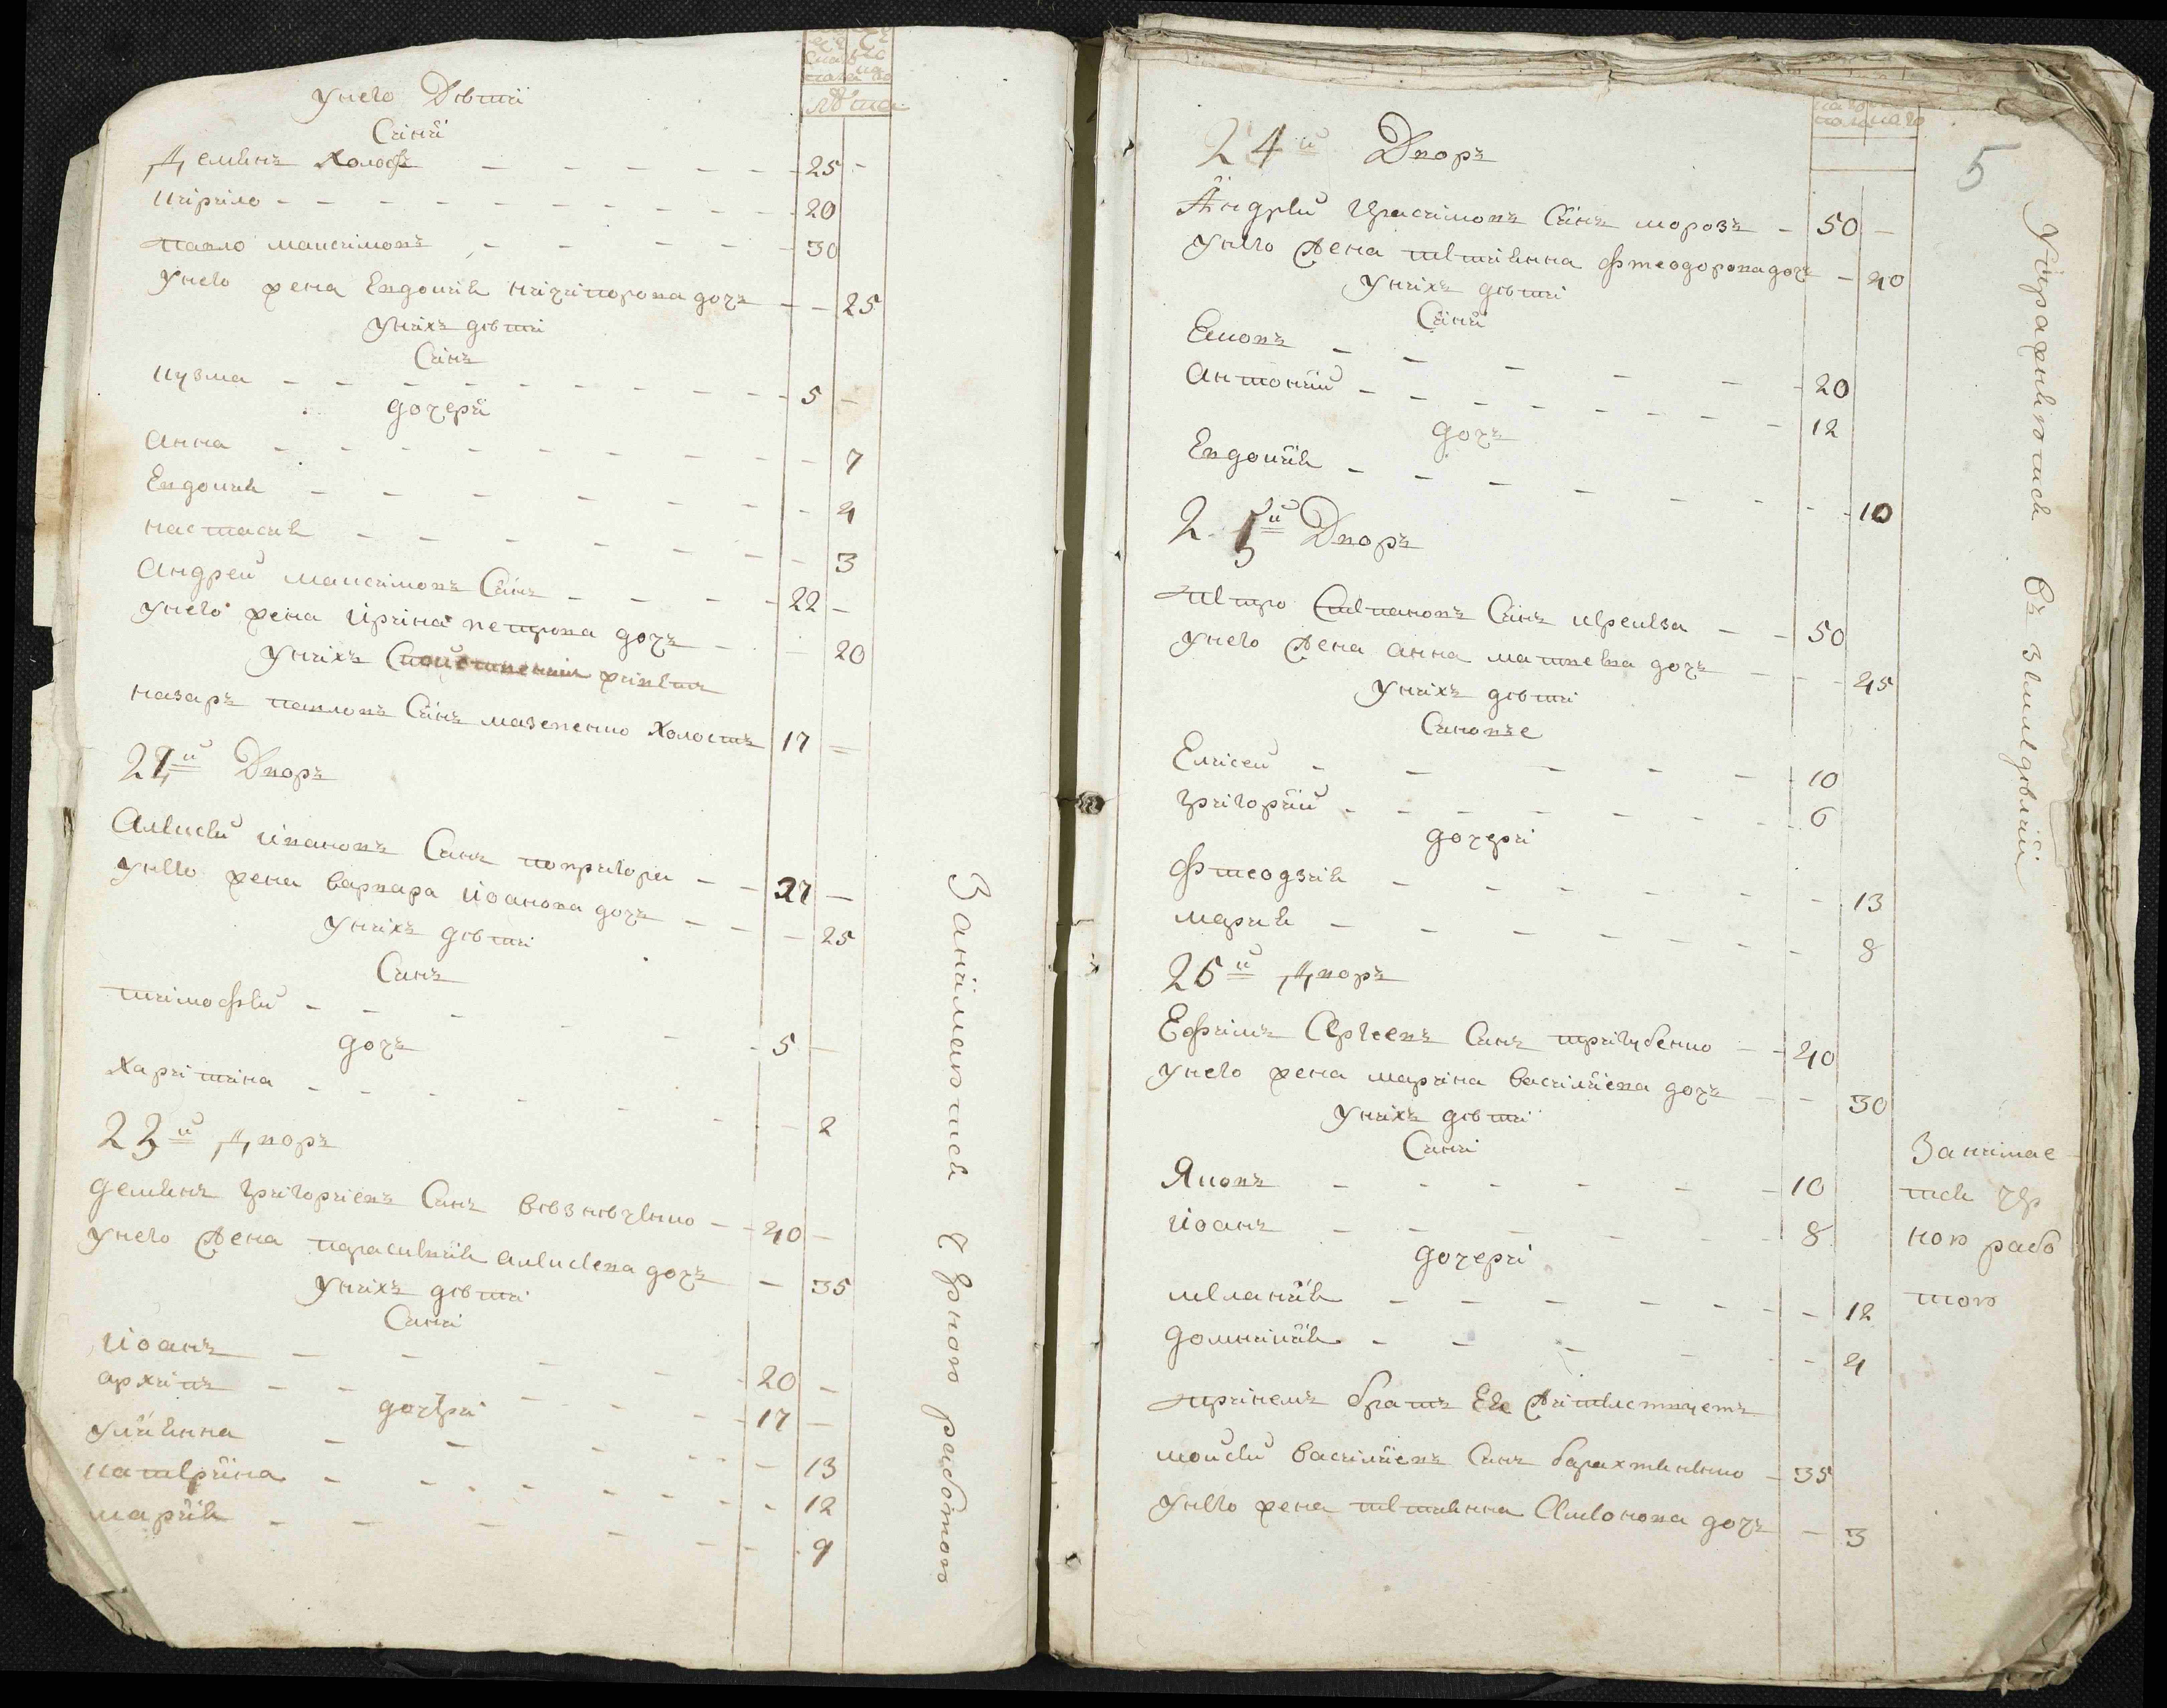 лѣта
у него Дѣти
Сини
Демянъ Холостъ 25 -
кирило 20
павло максимовъ 30
у него жена Евдокия ничипорова дочъ 25
у нихъ дѣти
Синъ
кузма 5 -
дочери
Анна 7
Евдокия 4
настасия 3
Андреи максимовъ Синъ 22 -
у него жена ирина петрова дочъ 20
у нихъ живетъ
назаръ павловъ Синъ мазепенко Холостъ 17 =
22й Дворъ
Алексѣй ивановъ Синъ 27 -
у него жена варвара иоанова дочъ 25
у нихъ дѣти
Синъ
тимофѣй 5 -
дочъ
Харитина 2
23й Дворъ
демянъ григориевъ Синъ 40 -
у него жена параскевия алексѣева дочъ 35
у нихъ дѣти
Сини
иоанъ 20 -
архипъ 17 -
дочери
улиянна 13
катерина 12
мария 9
Занимаются Черною работою
5
24й Дворъ
Андрѣй Герасимовъ Синъ морозъ 50 -
у него жена татиянна фтеодоровадочъ 40
у нихъ дѣти
Сини
Яковъ 20
Антоний 12
дочъ
Евдокия 10
25й Дворъ
петро Степановъ Синъ 50
у него жена анна матвеева дочъ 45
у нихъ дѣти
Синовъе
Елисеи 10
григорий 6
дочери
фтеодзия 13
мария 8
26й Дворъ
Ефимъ Сергеевъ Синъ тригубенко 40
у него жена марина василиева дочъ 30
у нихъ дѣти
Сини
Яковъ 10
иоанъ 8
дочери
мелания 12
домникия 4
при немъ братъ Ея жителствуетъ
моисѣй василиевъ Синъ барахтянъко 35
у него жена татиянна дочъ 3
Упражняются въ земледѣлии
Занимае
тся чер
ною рабо
тою